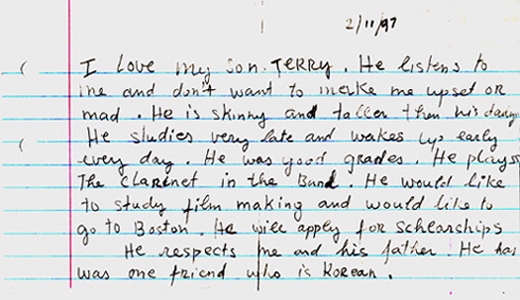 2/11/97
I love my son. TERRY. He listens to
me and don't want to make me upset or
mad. He is skinny and taller then his
He studies very late and wakes up early
every day. He was good grades. He plays
The Clarinet in the Band. He would like
to study film making and would like to
go to Boston. He will apply for Schlarships
He respects me and his father. He has
was one friend who is Korean.